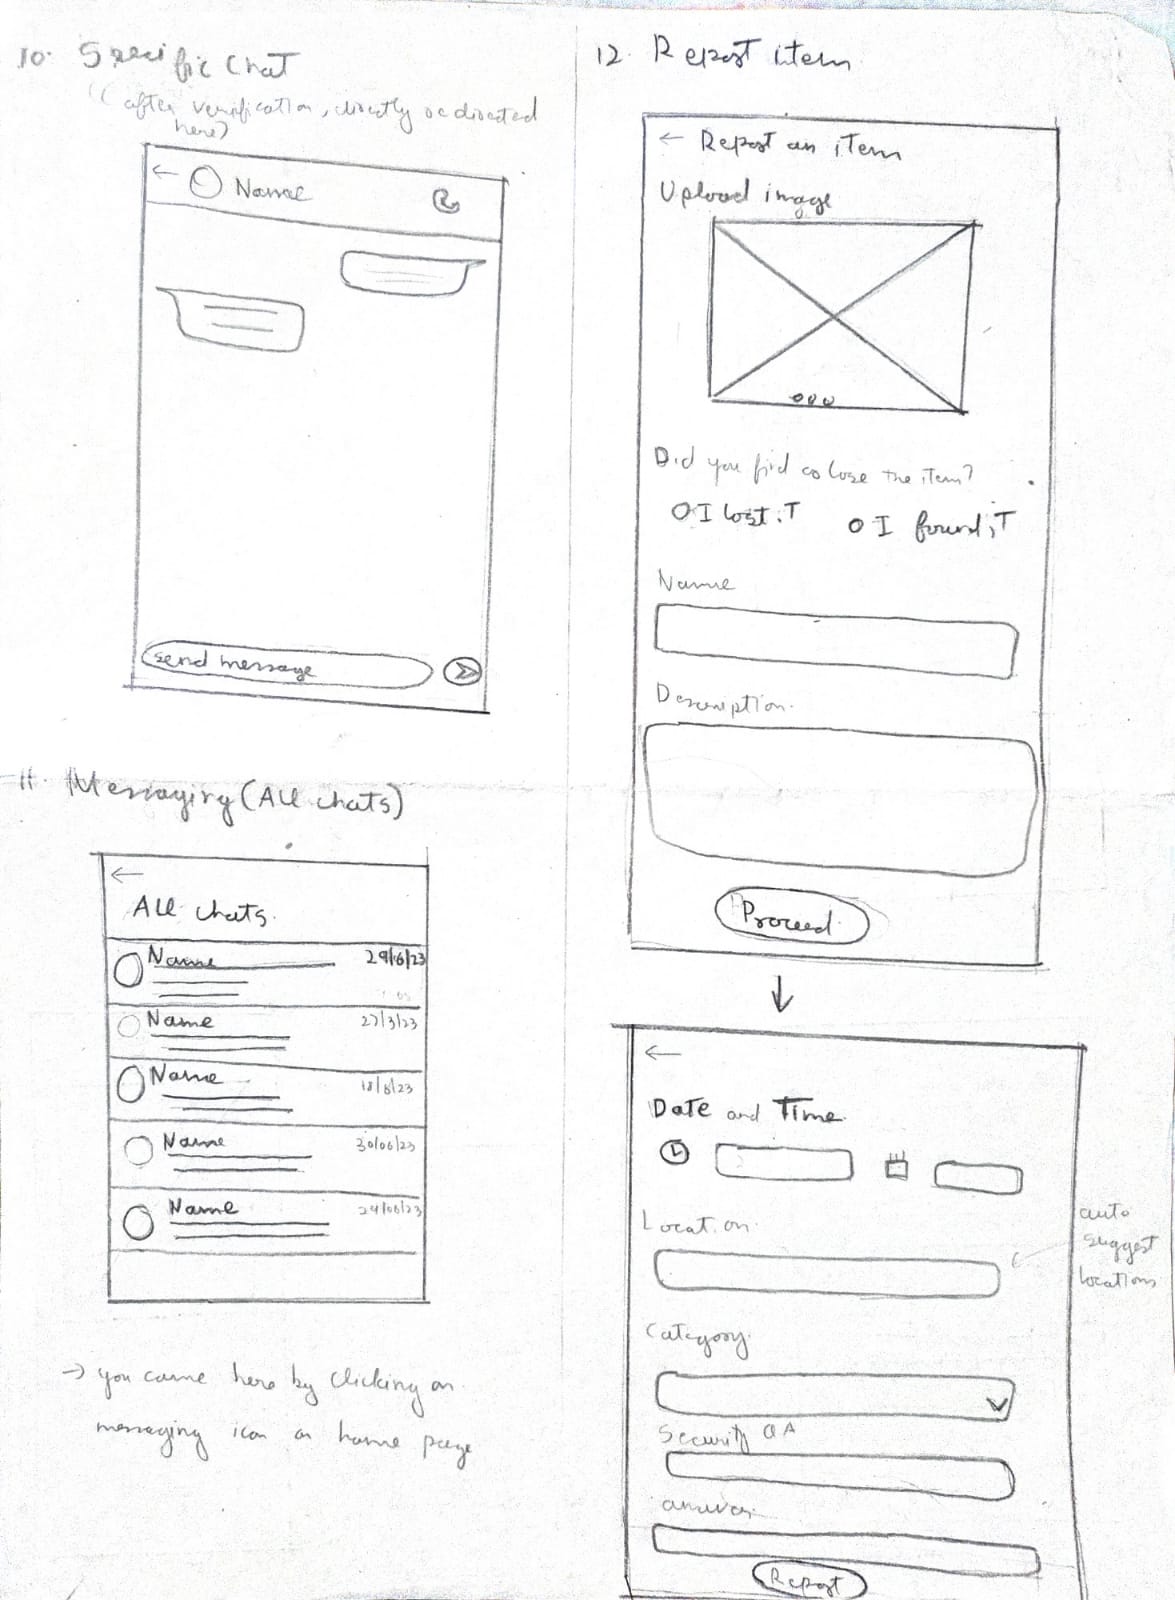 10. Specific Chat
(after verification, directly redirected
here)
← Name
send message
11. Messaging (All chats)
←
All chats.
Name 29/6/23
Name 27/3/23
Name 18/6/23
Name 30/06/23
Name 29/06/23
→ you came here by clicking on
messaging icon on home page
12. Report item
← Report an item
Upload image
Did you find or lose the item?
I lost it I found it
Name
Description.
Proceed
↓
←
Date and Time.
Location.
auto
suggest
locations
Category
Security QA
answer
Report